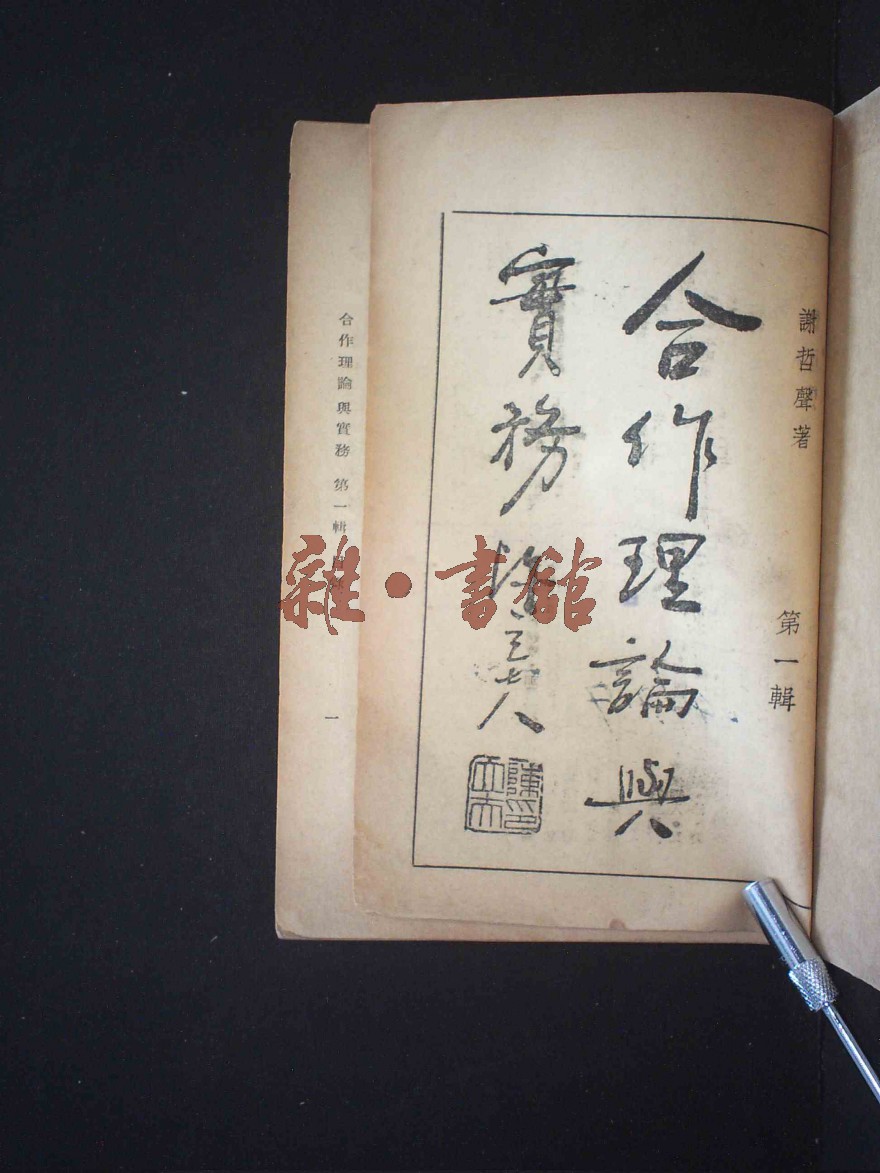 謝哲聲著
第一輯
合作理論與
實務
陳立夫
陳印
立夫
合作理論與實務 第一輯
一
雜·書館